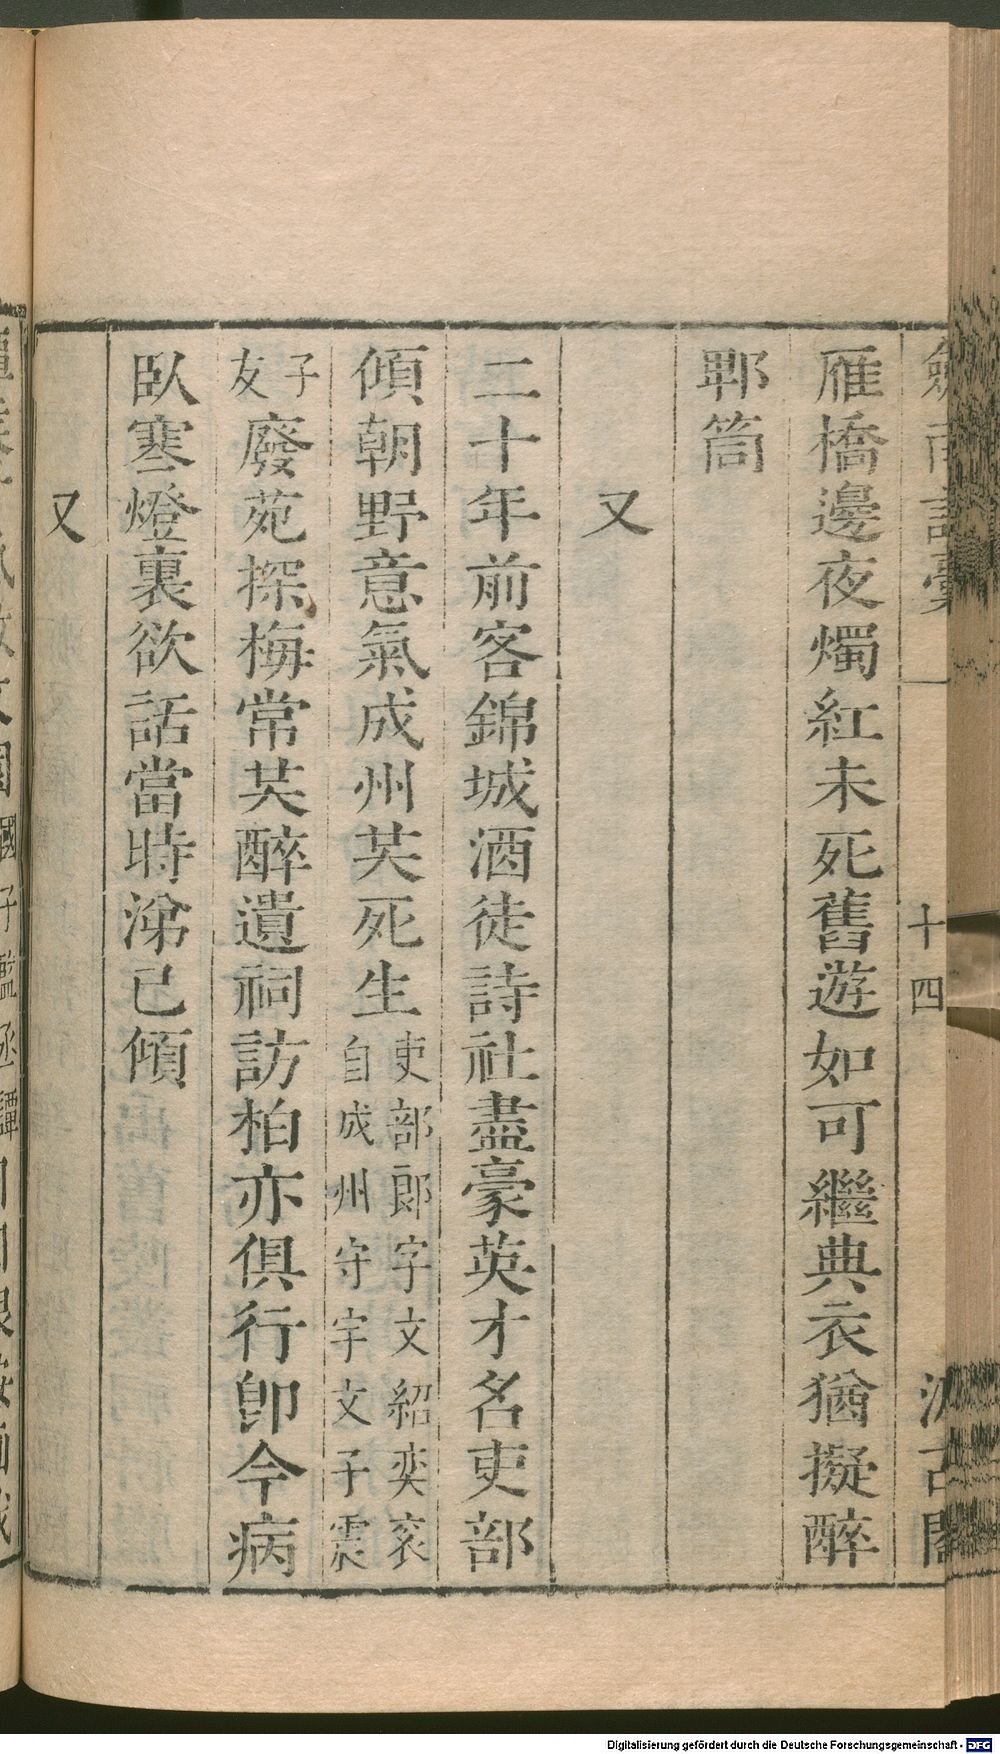 劒南詩稾 十四 汲古閣
雁橋邊夜燭紅未死舊遊如可繼典衣猶擬醉
郫筒
又
二十年前客錦城酒徒詩社盡豪英才名吏部
傾朝野意氣成州共死生吏部郎宇文紹奕衮自成州守宇文子震
子友廢苑探梅常共醉遺祠訪柏亦俱行卽今病
臥寒燈裏欲話當時涕已傾
又
Digitalisierung gefördert durch die Deutsche Forschungsgemeinschaft - DFG